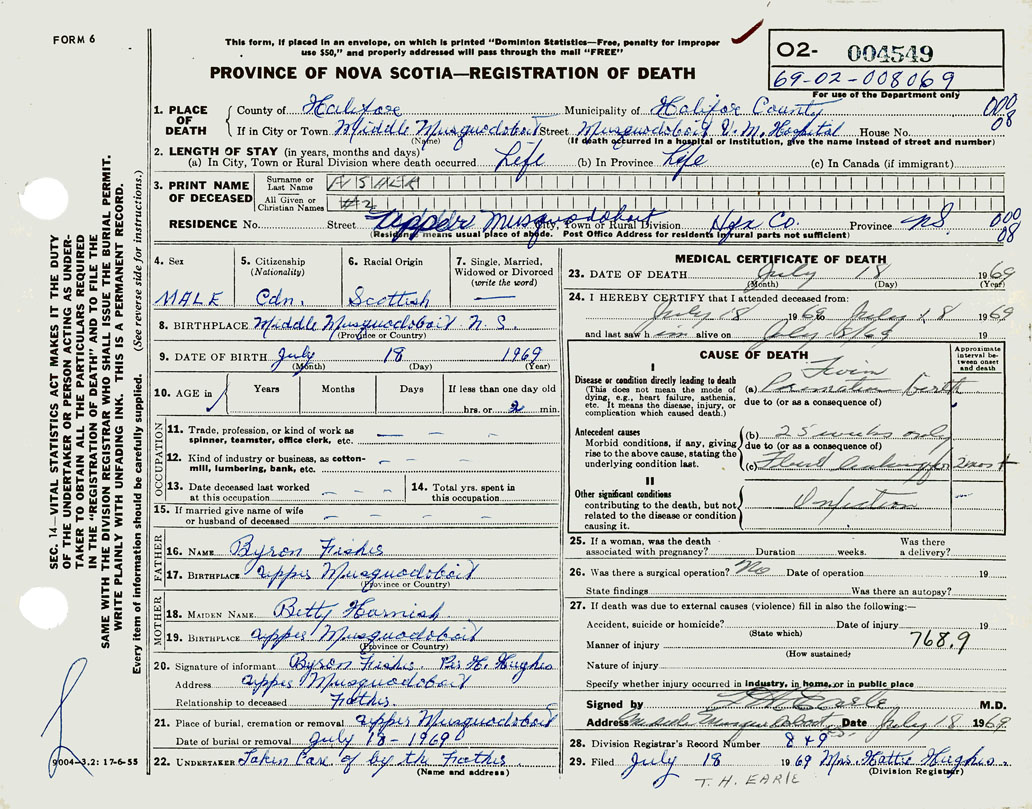 FORM 6
This form, if placed in an envelope, on which is printed "Dominion Statistics—Free, penalty for improper
use $50," and properly addressed will pass through the mail "FREE"
PROVINCE OF NOVA SCOTIA—REGISTRATION OF DEATH
02- 004549
69-02-008069
For use of the Department only
1. PLACE OF DEATH County of Halifax Municipality of Halifax County 000 08
If in City or Town Middle Musquodoboit Street Musquodoboit V. M. Hospital House No.
(Name) (If death occurred in a hospital or institution, give the name instead of street and number)
2. LENGTH OF STAY (in years, months and days)
(a) In City, Town or Rural Division where death occurred Life (b) In Province Life (c) In Canada (if immigrant)
3. PRINT NAME OF DECEASED Surname or Last Name FISHER
All Given or Christian Names #2
RESIDENCE No. Street Upper Musquodoboit City, Town or Rural Division Hfx Co. Province NS 000 08
(Residence means usual place of abode. Post Office Address for residents in rural parts not sufficient)
4. Sex MALE
5. Citizenship (Nationality) Cdn.
6. Racial Origin Scottish
7. Single, Married, Widowed or Divorced (write the word) —
8. BIRTHPLACE Middle Musquodoboit N.S.
(Province or Country)
9. DATE OF BIRTH July 18 1969
(Month) (Day) (Year)
10. AGE in Years Months Days If less than one day old
hrs. or 2 min.
OCCUPATION
11. Trade, profession, or kind of work as spinner, teamster, office clerk, etc. — – –
12. Kind of industry or business, as cotton-mill, lumbering, bank, etc. – – –
13. Date deceased last worked at this occupation – – –
14. Total yrs. spent in this occupation – –
15. If married give name of wife or husband of deceased – – –
FATHER
16. NAME Byron Fisher
17. BIRTHPLACE Upper Musquodoboit
(Province or Country)
MOTHER
18. MAIDEN NAME Betty Harnish
19. BIRTHPLACE Upper Musquodoboit
(Province or Country)
20. Signature of informant Byron Fisher. Per H. Hughes
Address Upper Musquodoboit
Relationship to deceased Father.
21. Place of burial, cremation or removal Upper Musquodoboit
Date of burial or removal July 18 - 1969
22. UNDERTAKER Taken Care of by the Father.
(Name and address)
MEDICAL CERTIFICATE OF DEATH
23. DATE OF DEATH July 18 1969
(Month) (Day) (Year)
24. I HEREBY CERTIFY that I attended deceased from:
July 18 196 July 18 1969
and last saw h im alive on July 18/69 19
CAUSE OF DEATH
Approximate interval between onset and death
I
Disease or condition directly leading to death
(This does not mean the mode of dying, e.g., heart failure, asthenia, etc. It means the disease, injury, or complication which caused death.)
(a) Twin Premature birth
due to (or as a consequence of)
Antecedent causes
Morbid conditions, if any, giving rise to the above cause, stating the underlying condition last.
(b) 25 weeks only
due to (or as a consequence of)
(c) leaking for 2 mos +
II
Other significant conditions
contributing to the death, but not related to the disease or condition causing it.
Infection
25. If a woman, was the death associated with pregnancy? Duration weeks. Was there a delivery?
26. Was there a surgical operation? No Date of operation 19
State findings Was there an autopsy?
27. If death was due to external causes (violence) fill in also the following:—
Accident, suicide or homicide? Date of injury 19
(State which)
Manner of injury 768.9
(How sustained)
Nature of injury
Specify whether injury occurred in industry, in home, or in public place
Signed by T H Earle M.D.
Address Middle Musquodoboit Date July 18 1969
28. Division Registrar's Record Number 849
29. Filed July 18 1969 Mrs. Hattie Hughes.
(Division Registrar)
T. H. EARLE
SEC. 14—VITAL STATISTICS ACT MAKES IT THE DUTY
OF THE UNDERTAKER OR PERSON ACTING AS UNDER-
TAKER TO OBTAIN ALL THE PARTICULARS REQUIRED
IN THE "REGISTRATION OF DEATH" AND TO FILE THE
SAME WITH THE DIVISION REGISTRAR WHO SHALL ISSUE THE BURIAL PERMIT.
WRITE PLAINLY WITH UNFADING INK. THIS IS A PERMANENT RECORD.
Every item of information should be carefully supplied. (See reverse side for instructions.)
9004-3.2: 17-6-55